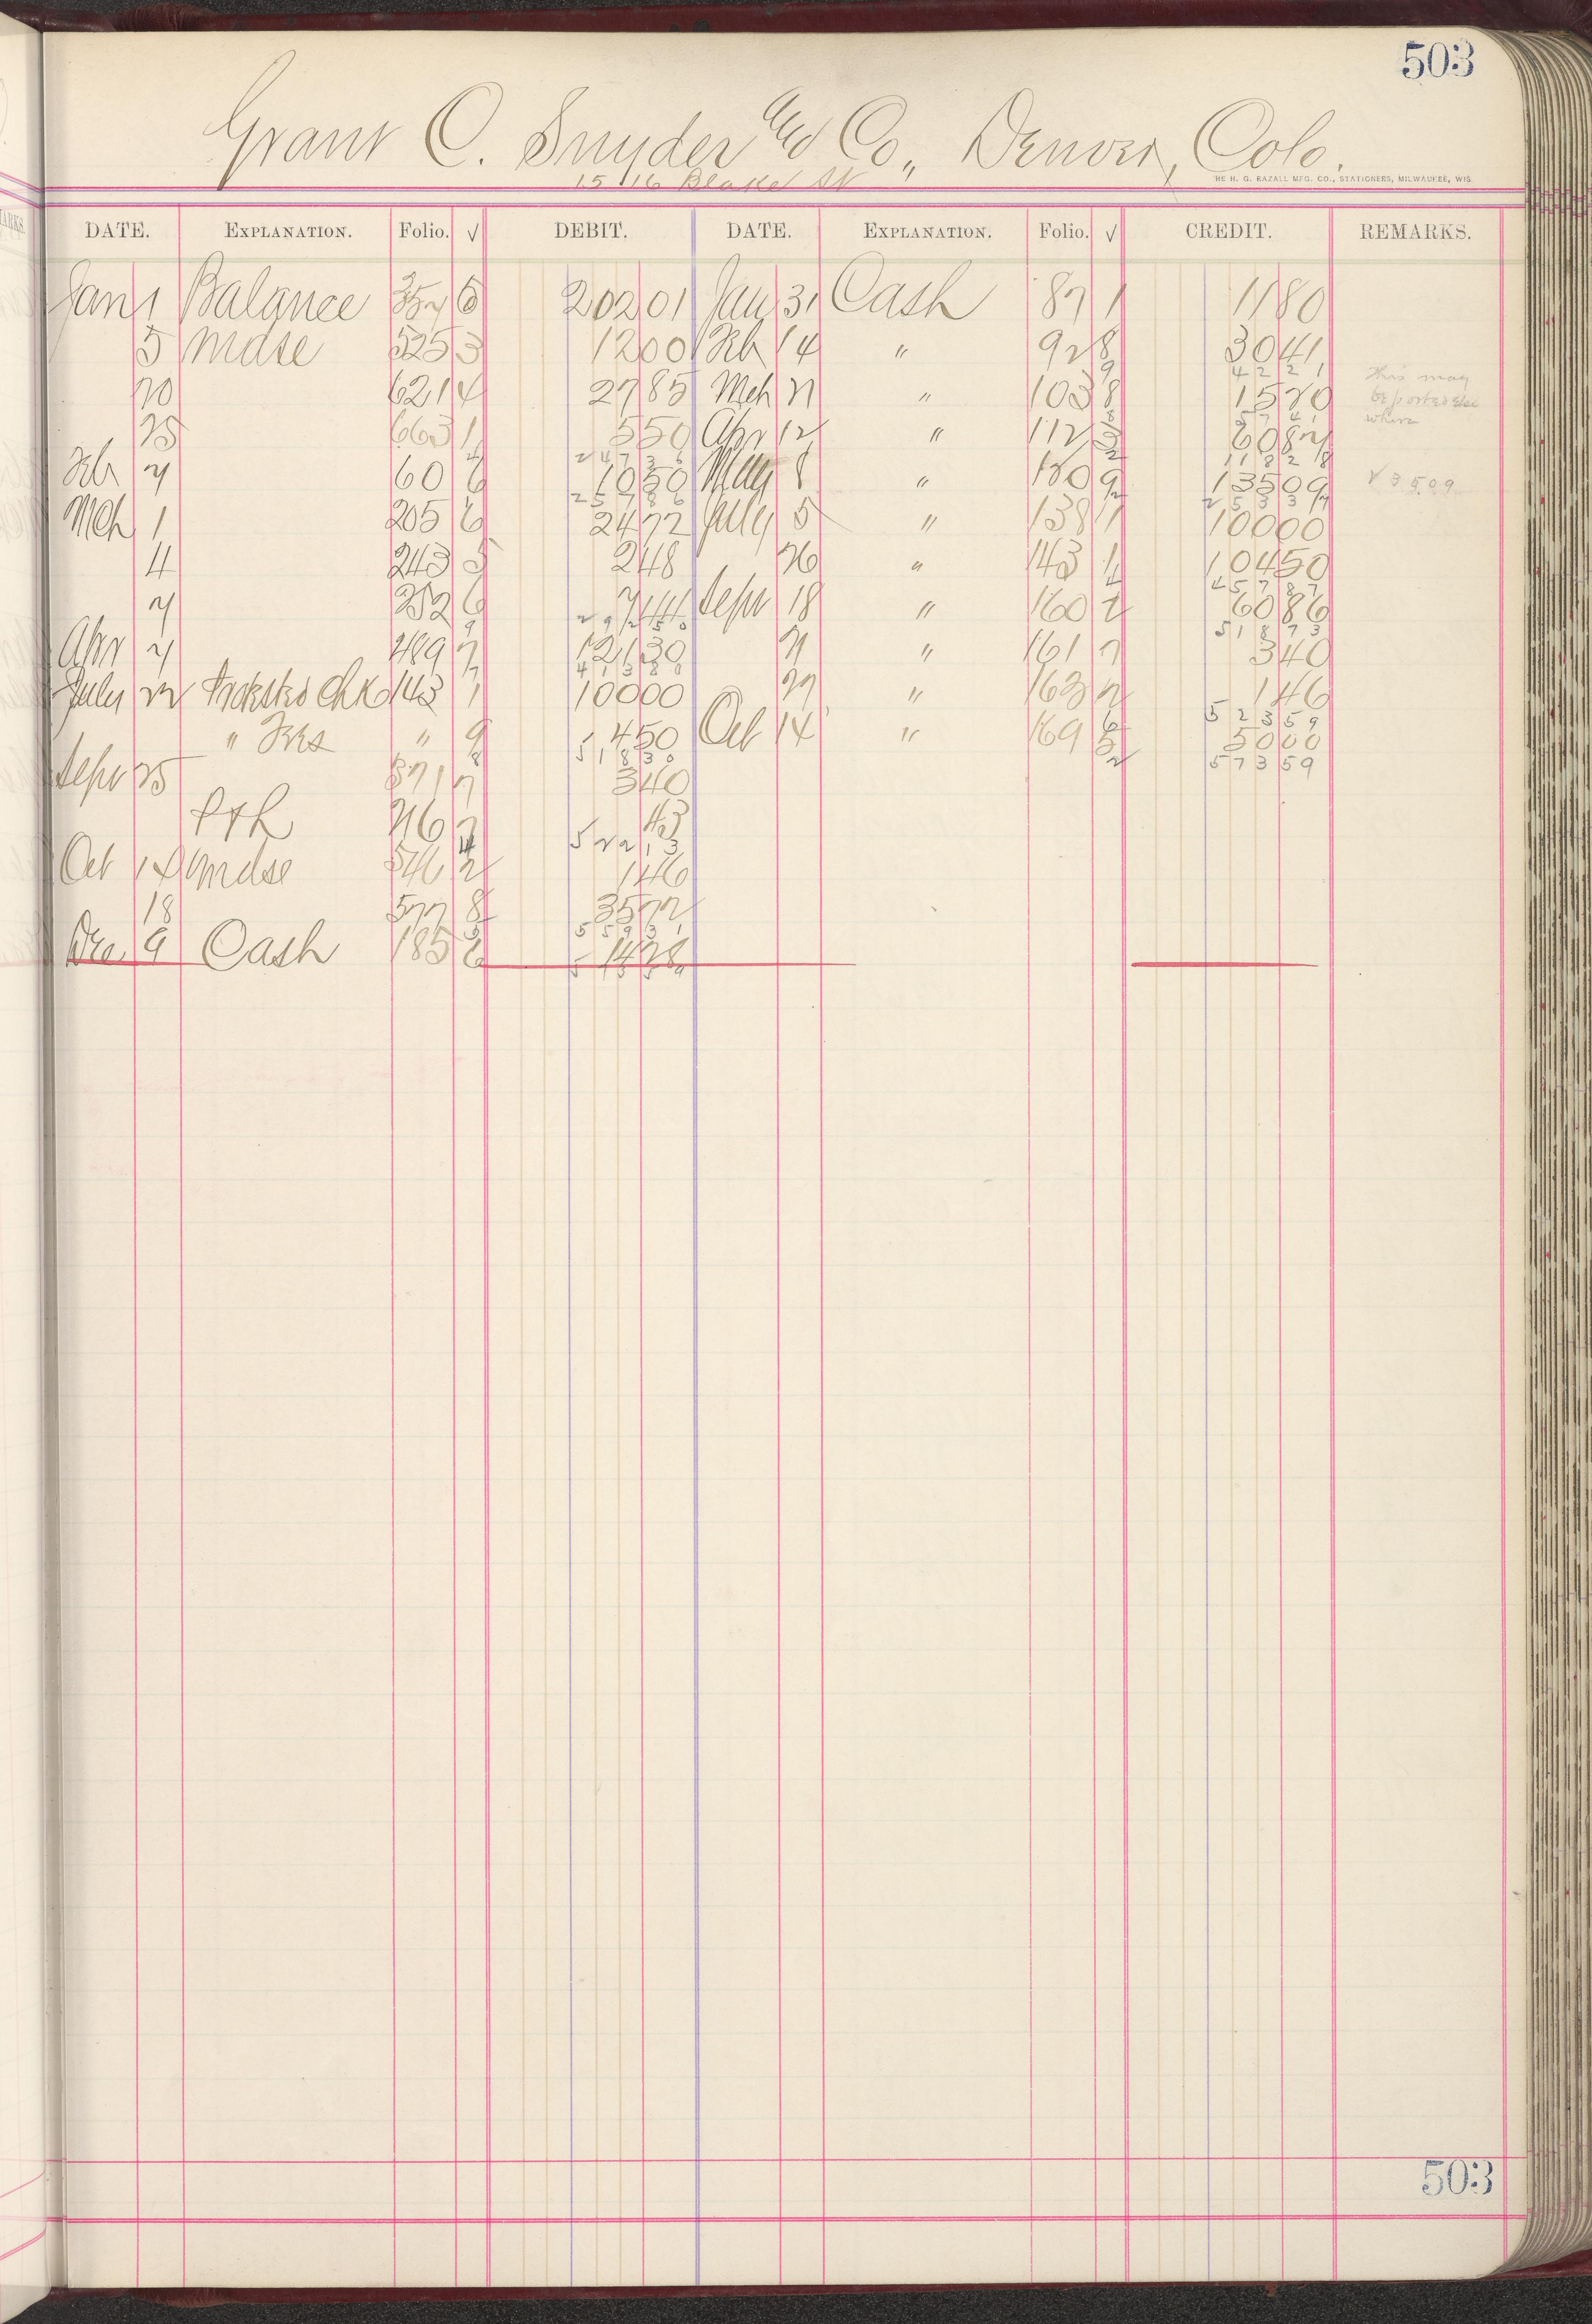 503
Grant C. Snyder and Co., Denver, Colo.
1516 Blake St
THE H. G. RAZALL MFG. CO., STATIONERS, MILWAUKEE, WIS.
DATE. EXPLANATION. Folio. √ DEBIT. DATE. EXPLANATION. Folio. √ CREDIT. REMARKS.
Jan 1 Balance 202 01 Jan 31 Cash 87 1 11 80
5 Mdse 525 3 12 00 Feb 14 " 92 8 30 41
4 2 2 1 This may
20 621 4 27 85 Mch 21 " 103 8 15 20 be posted else
5 7 4 1 where
25 663 1 5 50 Apr 12 " 112 60 87
2 4 7 3 6 1 1 8 2 8
Feb 7 60 6 10 50 May 8 " 120 9 135 09 13509
2 5 7 8 6 2 5 3 3 7
Mch 1 205 6 24 72 July 5 " 138 1 100 00
4 243 5 2 48 26 " 143 1 104 50
4 5 7 8 7
7 252 6 7 44 Sept 18 " 160 2 60 86
2 9 2 5 0 5 1 8 7 3
Apr 7 489 7 121 30 21 " 161 7 3 40
4 1 3 8 0
July 22 Protested Chk 143 1 100 00 27 " 163 2 1 46
5 2 3 5 9
" Fees " 9 4 50 Oct 14 " 169 5 50 00
5 1 8 3 0 5 7 3 5 9
Sept 25 571 7 3 40
216 7 43
5 2 2 1 3
Oct 14 Mdse 546 2 1 46
18 577 8 35 72
5 5 9 3 1
Dec 9 Cash 185 6 14 28
503